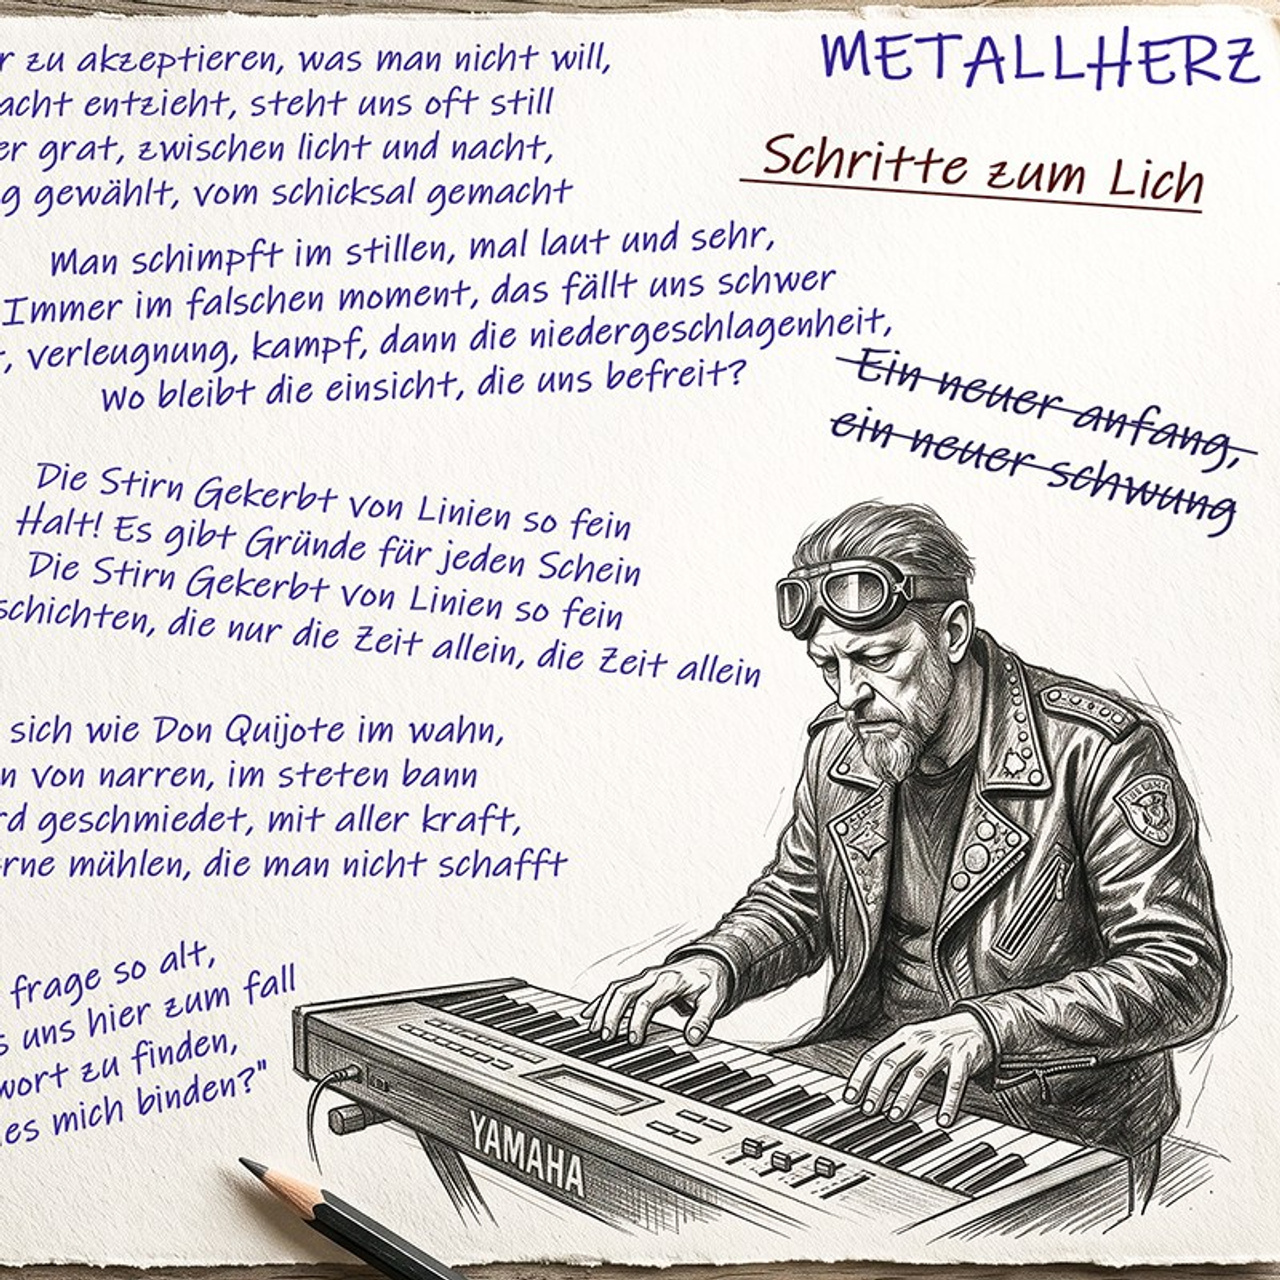 METALLHERZ
Schritte zum Lich
r zu akzeptieren, was man nicht will,
acht entzieht, steht uns oft still
er grat, zwischen licht und nacht,
g gewählt, vom schicksal gemacht
Man schimpft im stillen, mal laut und sehr,
Immer im falschen moment, das fällt uns schwer
, verleugnung, kampf, dann die niedergeschlagenheit,
Wo bleibt die einsicht, die uns befreit?
Ein neuer anfang,
ein neuer schwung
Die Stirn Gekerbt von Linien so fein
Halt! Es gibt Gründe für jeden Schein
Die Stirn Gekerbt von Linien so fein
schichten, die nur die Zeit allein, die Zeit allein
sich wie Don Quijote im wahn,
n von narren, im steten bann
rd geschmiedet, mit aller kraft,
rne mühlen, die man nicht schafft
frage so alt,
s uns hier zum fall
wort zu finden,
es mich binden?"
YAMAHA